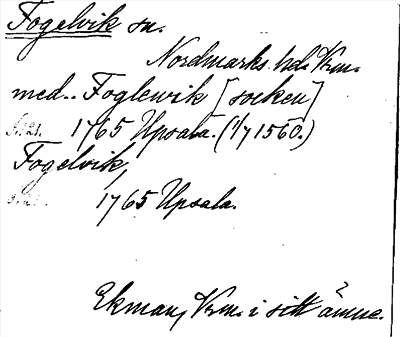 Fogelvik sn.
Nordmarks hd. Vrm.
med.. Foglewik [socken]
1765 Upsala. (1/7 1560.)
Fogelvik,
1765 Upsala.
Ekman, Vrm. i sitt ämne.